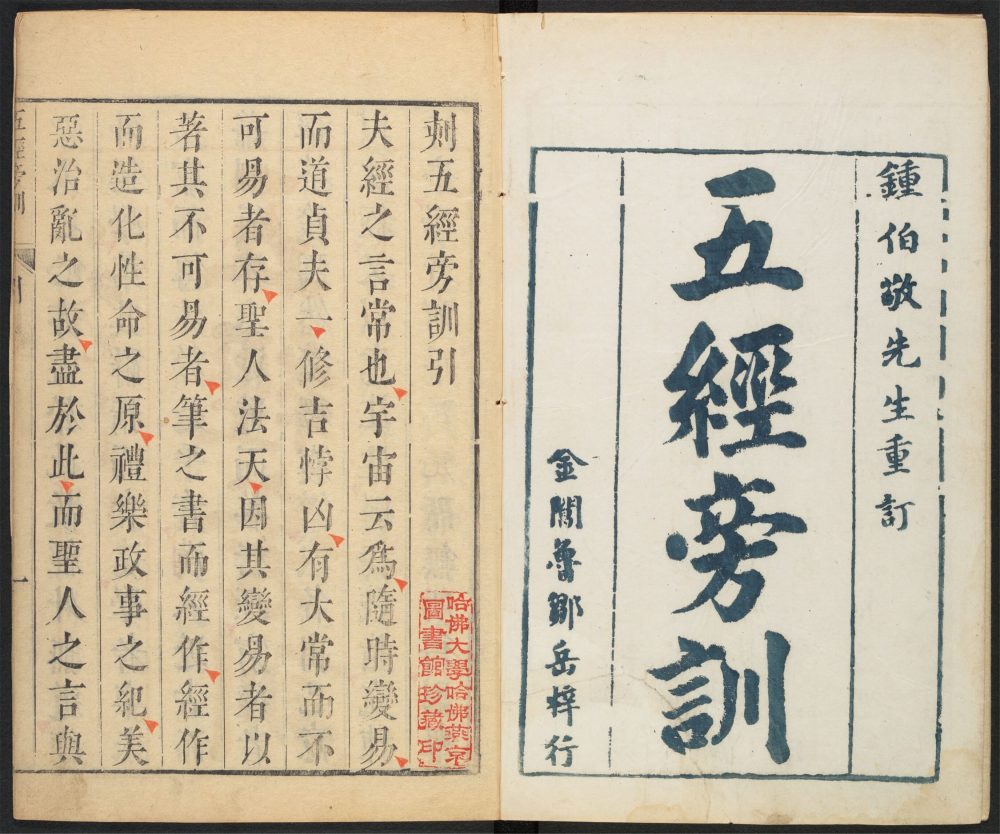 鍾伯敬先生重訂
五經旁訓
金閶魯鄒岳梓行
刻五經旁訓引
夫經之言常也宇宙云爲隨時變易
而道貞夫一修吉悖凶有大常而不
可易者存聖人法天因其變易者以
著其不可易者筆之書而經作經作
而造化性命之原禮樂政事之紀美
惡治亂之故盡於此而聖人之言與
五經旁訓
引
一
哈佛大學哈佛燕京
圖書館珍藏印